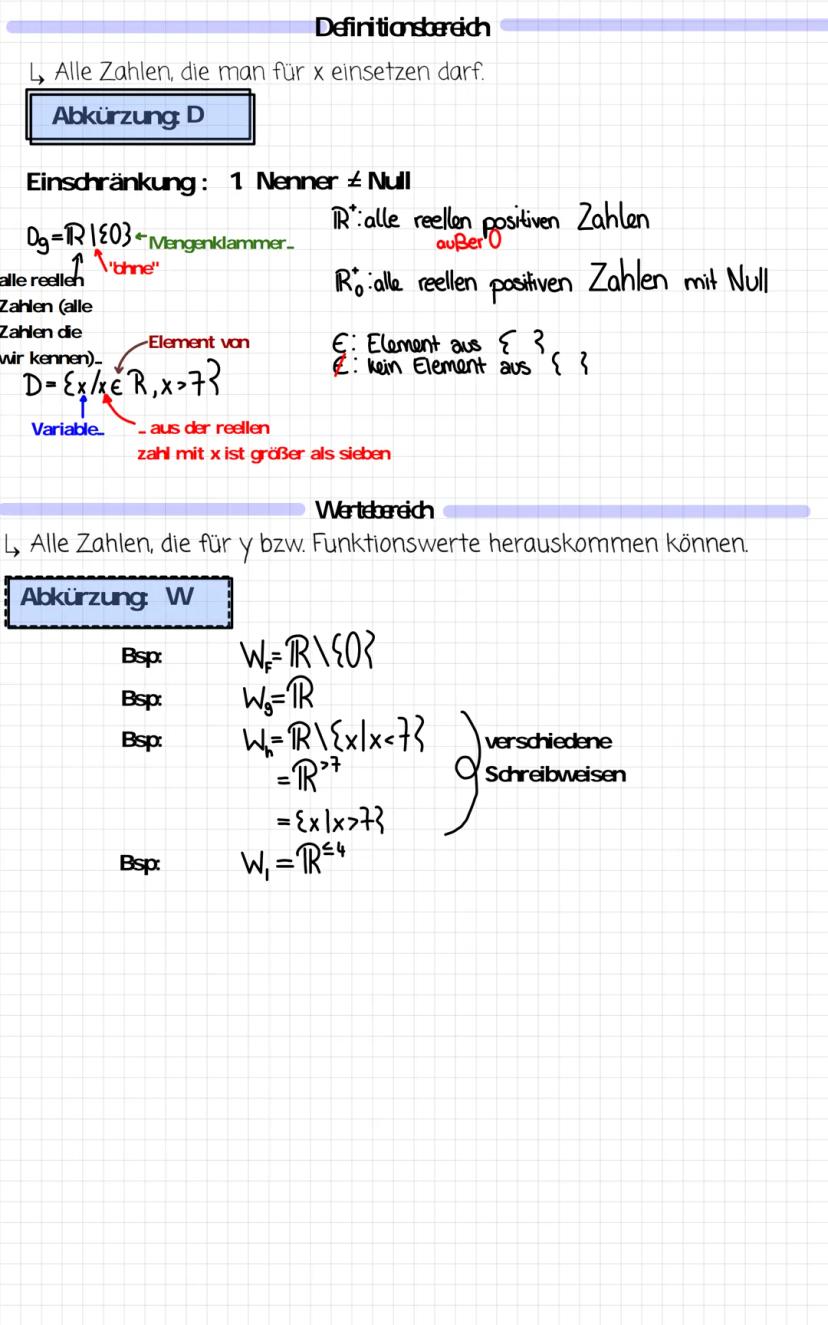 Definitionsbereich
↳ Alle Zahlen, die man für x einsetzen darf.
Abkürzung: D
Einschränkung: 1 Nenner ≠ Null
Dg=ℝ|{0} ← Mengenklammer..
"ohne"
alle reellen
Zahlen (alle
Zahlen die
wir kennen)..
ℝ⁺: alle reellen positiven Zahlen
außer 0
ℝ₀⁺: alle reellen positiven Zahlen mit Null
∈: Element aus { }
∉: kein Element aus { }
Element von
D={x/x∈ℝ, x>7}
Variable..
.. aus der reellen
zahl mit x ist größer als sieben
Wertebereich
↳ Alle Zahlen, die für y bzw. Funktionswerte herauskommen können.
Abkürzung: W
Bsp: W_F=ℝ\{0}
Bsp: W_g=ℝ
Bsp: W_h=ℝ\{x|x<7}
=ℝ^>7
={x|x>7}
verschiedene
Schreibweisen
Bsp: W_I=ℝ^≤4